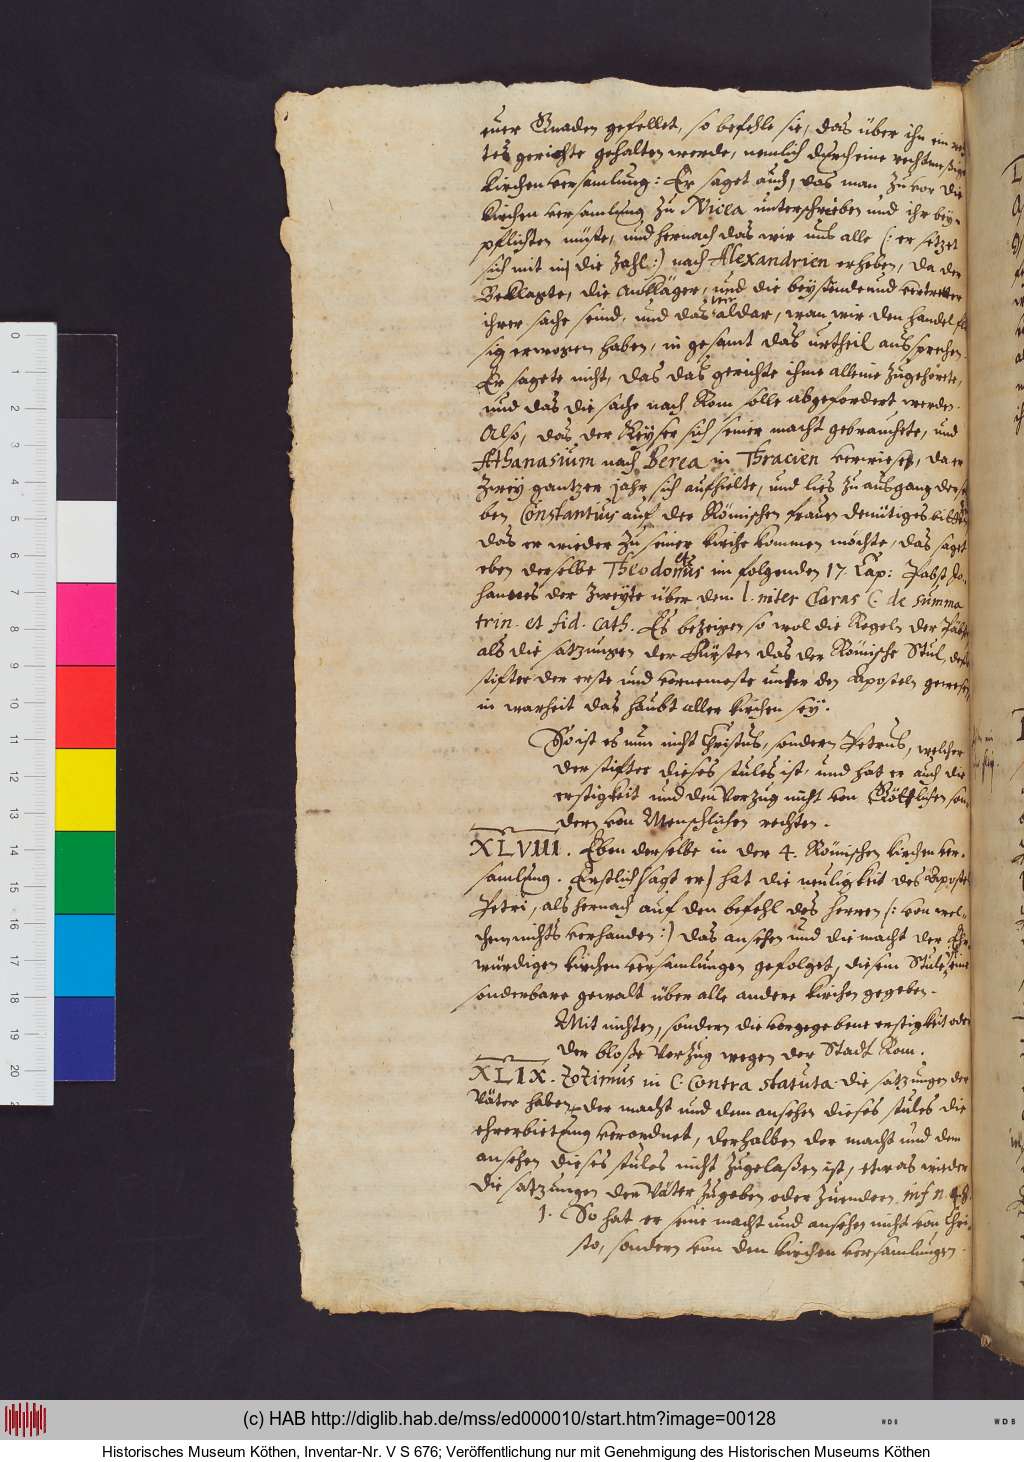 euer Gnaden gefellet, so befehle sie, das über ihn ein
tes gerichte gehalten werde, nemlich durch eine rechtmeßige
kirchen versamlung: Er saget auch, das man zuvor die
kirchen versamlung zu Nicea unterschrieben und ihr bey-
pflichten müste, und hernach das wir uns alle (: er setzet
sich mit in die zahl:) nach Alexandrien erheben, da der
Beklagte, die Ankläger, und die beystende und vertretter
ihrer sache seind, und das wir aldar, wan wir den handel
sig erwogen haben, in gesamt das urtheil aussprechen.
Er sagete nicht, das das gerichte ihme alleine zugehörete,
und das die sache nach Rom solle abgefordert werden.
Also, das der Keyser sich seiner macht gebrauchete, und
Athanasium nach Berea in Thracien verwiese, da er
zwey gantzer jahr sich aufhielte, und lies zu ausgang
ben Constantius auf der Römischen frauen demütiges bitten
das er wieder zu seiner kirche kommen möchte, das saget
eben derselbe Theodoretus im folgenden 17. Cap: Pabst Jo-
hannes der zweyte über dem l. inter Claras C. de summa
trin. et fid. cath. Es bezeigen so wol die Regeln der Päbste
als die satzungen der Fürsten das der Römische Stul,
stifter der erste und vornemeste unter den Aposteln gewesen,
in warheit das haubt aller kirchen sey.
So ist es nun nicht Christus, sondern Petrus, welcher
der stifter dieses stules ist, und hat er auch die
erstigkeit und den vorzug nicht von Göttlichen son-
dern von Menschlichen rechten.
XLVIII. Eben derselbe in der 4. Römischen kirchen ver-
samlung. Erstlich (sagt er) hat die neuligkeit des Apostels
Petri, als hernach auf den befehl des herren (: von wel-
chem nichts verhanden:) das ansehen und die macht der Ehr-
würdigen kirchen versamlungen gefolget, diesem Stule eine
sonderbare gewalt über alle andere kirchen gegeben.
Mit nichten, sondern die vorgegebene erstigkeit oder
der bloße vorzug wegen der Stadt Rom.
XLIX. Zozimus in C. Contra statuta. die satzungen der
Väter haben der macht und dem ansehen dieses stules die
ehrerbietung verordnet, derhalben der macht und dem
ansehen dieses stules nicht zugelaßen ist, etwas wieder
die satzungen der Väter zugeben oder zuendern inf n.
1. So hat er seine macht und ansehen nicht von Chri-
sto, sondern von den kirchen versamlungen.
0
1
2
3
4
5
6
7
8
9
10
11
12
13
14
15
16
17
18
19
20
(c) HAB http://diglib.hab.de/mss/ed000010/start.htm?image=00128
Historisches Museum Köthen, Inventar-Nr. V S 676; Veröffentlichung nur mit Genehmigung des Historischen Museums Köthen